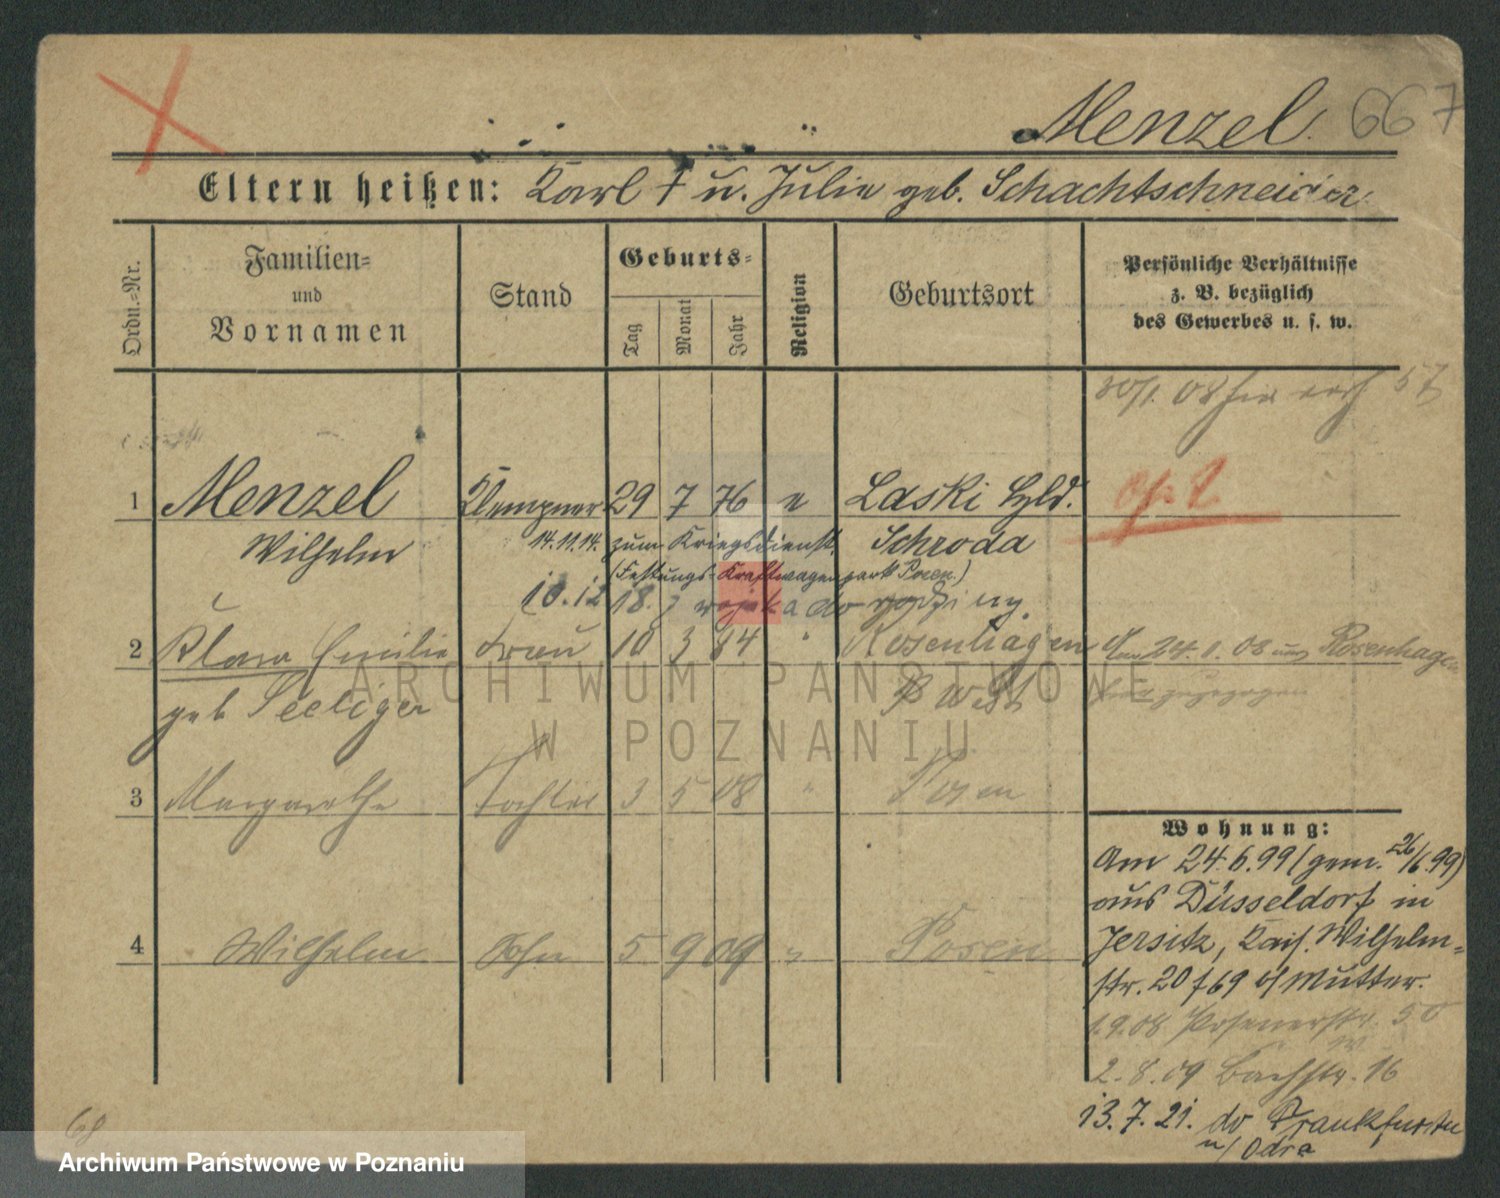 Menzel. 667
Eltern heißen: Karl † u. Julie geb. Schachtschneider.
Ordn.-Nr.
Familien-
und
Vornamen
Stand
Geburts-
Tag
Monat
Jahr
Religion
Geburtsort
Persönliche Verhältnisse
z. B. bezüglich
des Gewerbes u. s. w.
30/1. 08 57
1 Menzel Klempner 29 7 76 e Laski Hld.
Wilhelm 14.11.14. zum Kriegsdienst. Schroda
(Festungs-Kraftwagenpark Posen.)
10.12 18. z wojska do rodziny.
2 Klara Emilie Frau 10 3 84 " Rosenhagen Am 24. 1. 08 aus Rosenhagen
geb Seeliger zugezogen
3 Margarethe Tochter 3 5 08 " Posen
4 Wilhelm Sohn 5 9 09 " Posen
Wohnung:
Am 24.6.99 (gem. 26/6.99)
aus Düsseldorf in
Jersitz, Kais. Wilhelm-
str. 20 f 69 b/ Mutter.
1.9.08 Posenerstr. 50
2.8.09 Bachstr. 16
13.7.21. do Frankfurtu
n/Odrą
68
ARCHIWUM PAŃSTWOWE
W POZNANIU
Archiwum Państwowe w Poznaniu